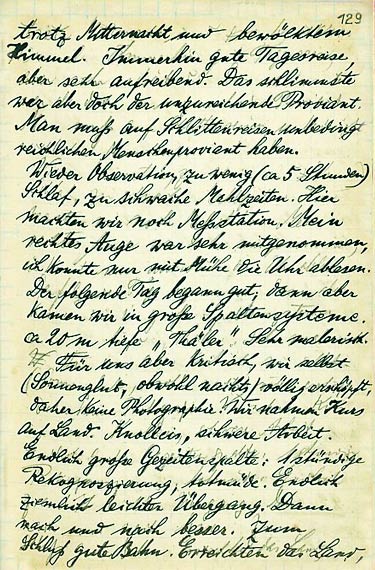 129
trotz Mitternacht und bewölktem
Himmel. Immerhin gute Tagesreise,
aber sehr aufreibend. Das schlimmste
war aber doch der unzureichende Proviant.
Man muss auf Schlittenreisen unbedingt
reichlichen Menschenproviant haben.
Wieder Observation, zu wenig (ca 5 Stunden)
Schlaf, zu schwache Mahlzeiten. Hier
machten wir noch Messstation. Mein
rechtes Auge war sehr mitgenommen,
ich konnte nur mit Mühe die Uhr ablesen.
Der folgende Tag begann gut, dann aber
kamen wir in große Spaltensysteme.
ca 20 m tiefe „Thäler". Sehr malerisch.
Für uns aber kritisch, wir selbst
(Sonnenglut, obwohl nachts) völlig erschöpft,
daher keine Photographie. Wir nahmen Kurs
auf Land. Knolleis, schwere Arbeit.
Endlich große Gezeitenspalte: 1 stündige
Rekognoszierung, totmüde. Endlich
ziemlich leichter Übergang. Dann
nach und nach besser. Zum
Schluß gute Bahn. Erreichten das Land,